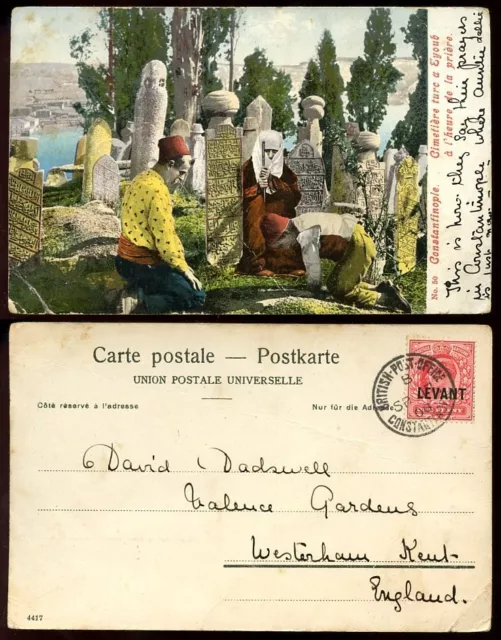 No. 50 Constantinople. Cimetière turc à Eyoub
à l'heure de la prière.
This is how they say their prayers
in Constantinople where Auntie
is just
Carte postale — Postkarte
UNION POSTALE UNIVERSELLE
Côté réservé à l'adresse
Nur für die Adresse
BRITISH-POST-OFFICE
CONSTAN
LEVANT
David Dadswell
Valence Gardens
Westerham Kent
England.
4417